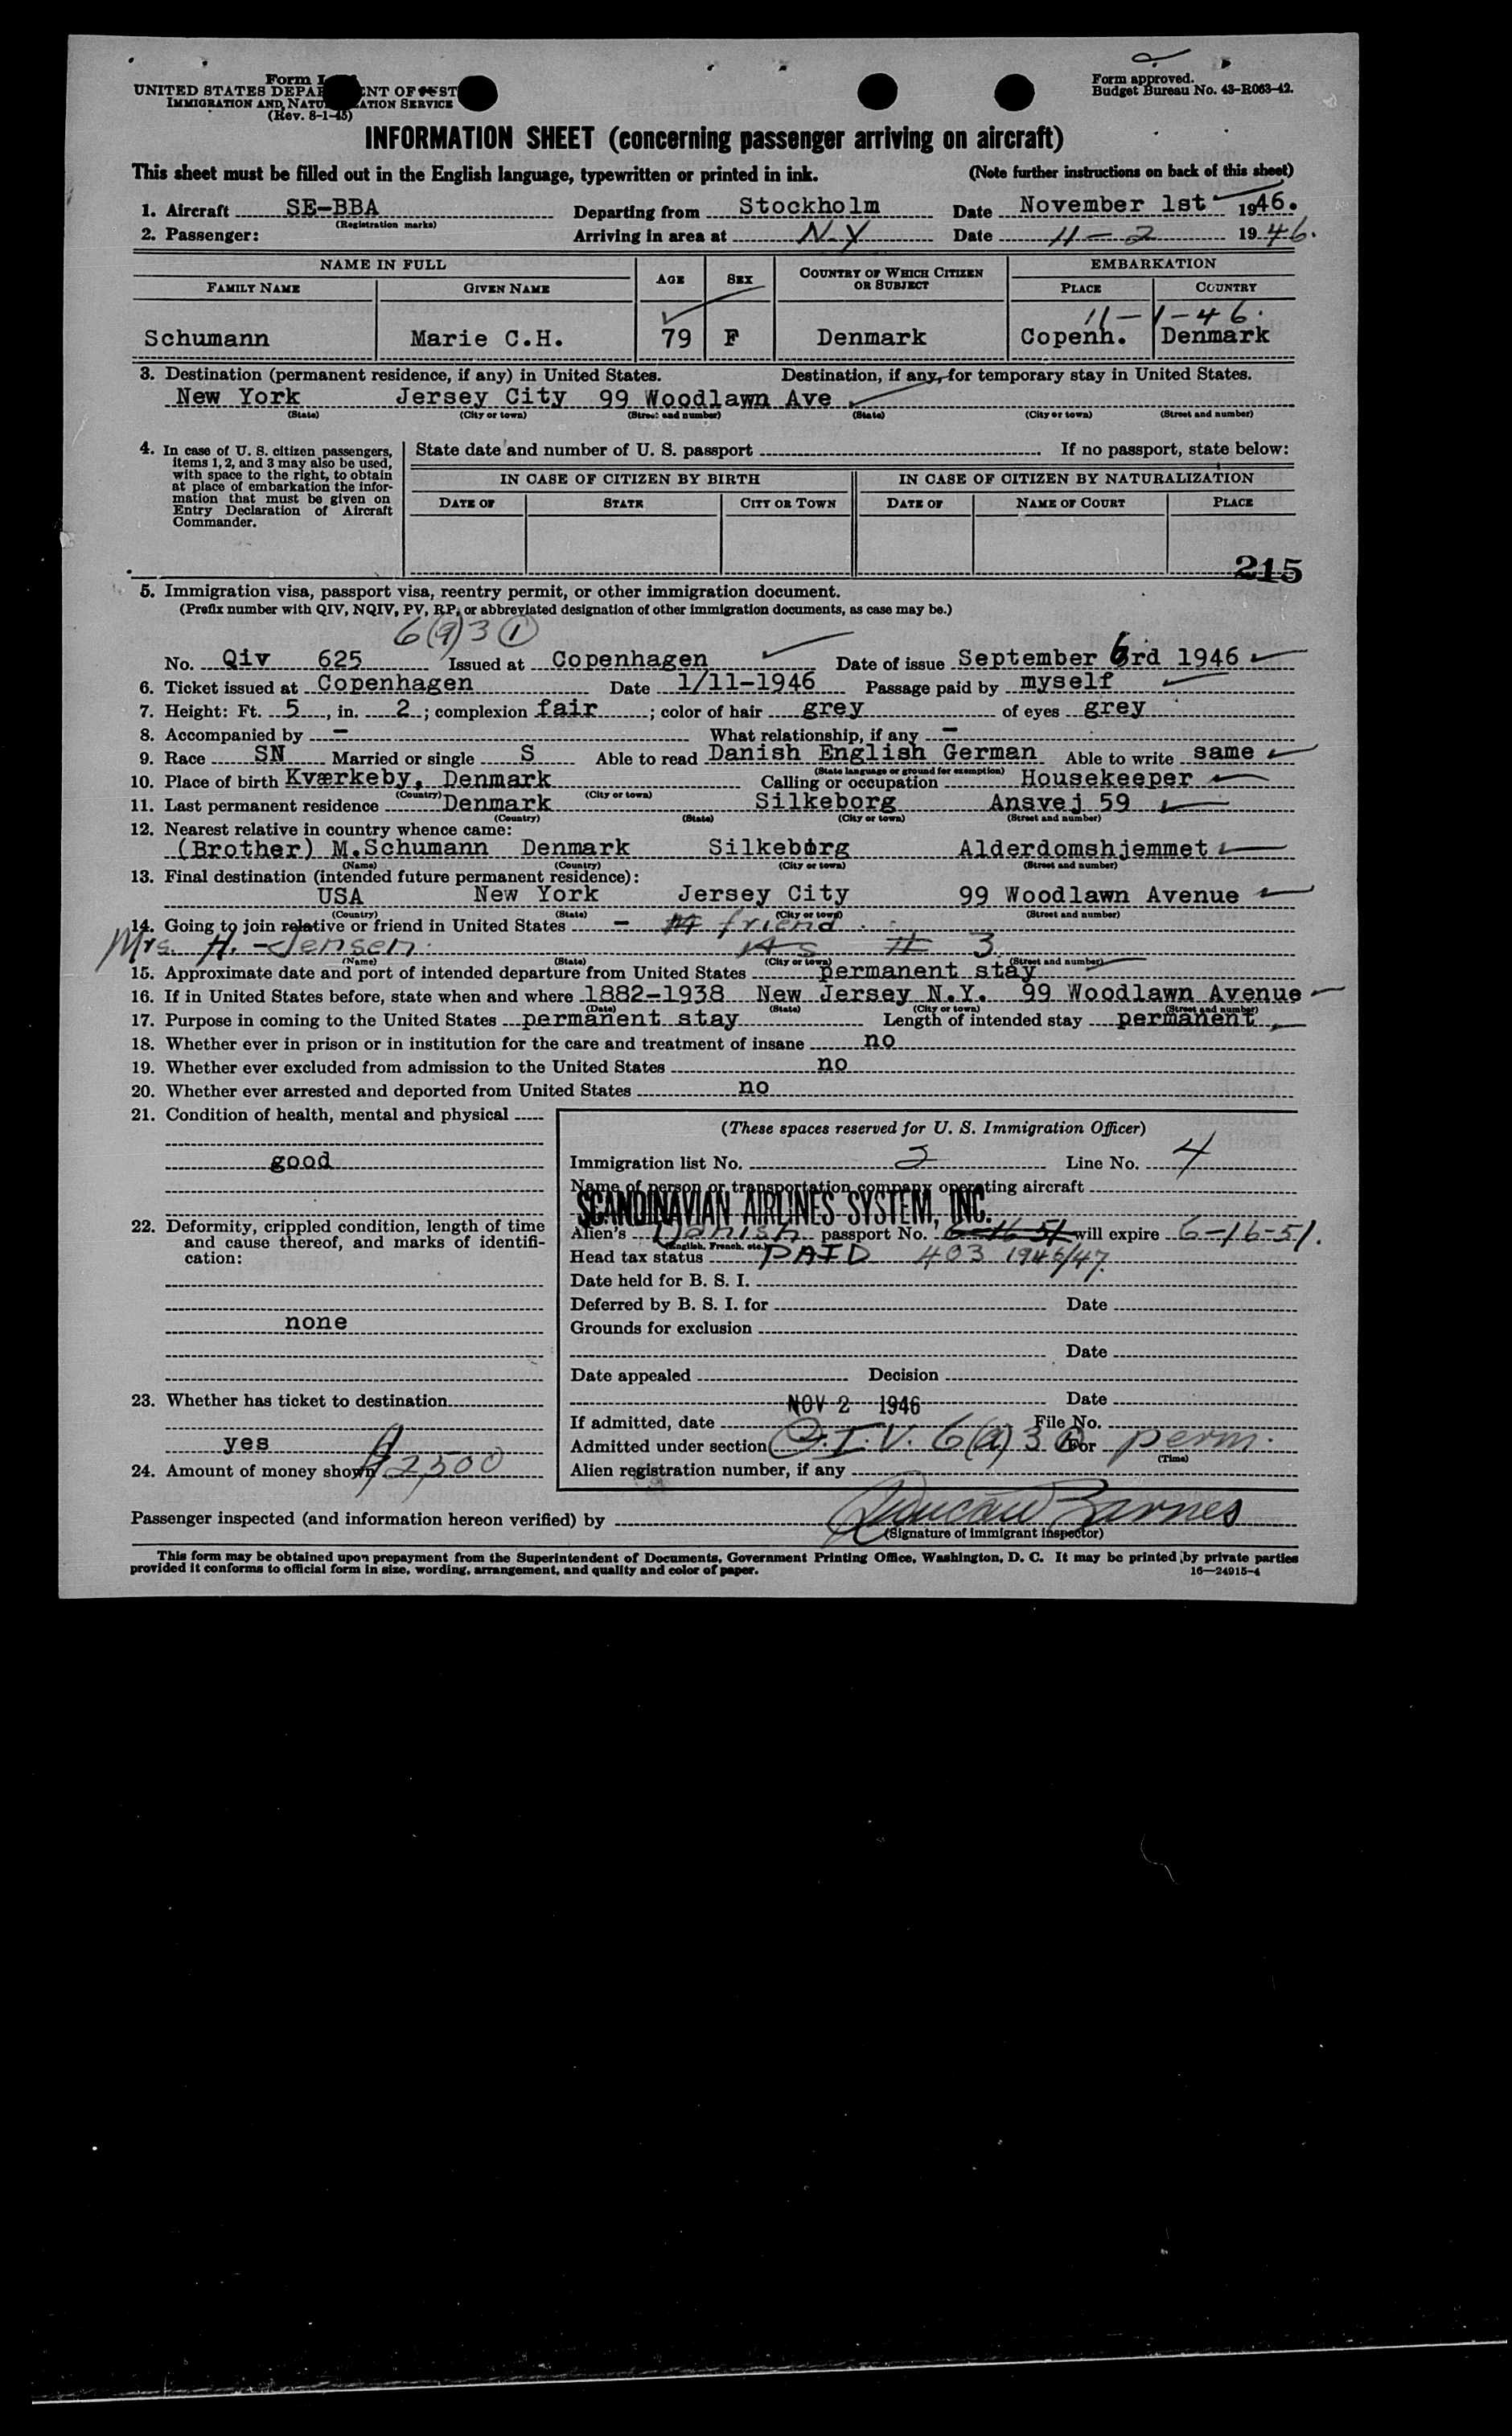 Form I
UNITED STATES DEPA NT OF ST
IMMIGRATION AND NATU ATION SERVICE
(Rev. 8-1-45)
Form approved.
Budget Bureau No. 43-R063-42.
INFORMATION SHEET (concerning passenger arriving on aircraft)
This sheet must be filled out in the English language, typewritten or printed in ink. (Note further instructions on back of this sheet)
1. Aircraft SE-BBA Departing from Stockholm Date November 1st 1946.
(Registration marks)
2. Passenger: Arriving in area at N.Y Date 11-2 1946.
NAME IN FULL AGE SEX COUNTRY OF WHICH CITIZEN OR SUBJECT EMBARKATION
FAMILY NAME GIVEN NAME PLACE COUNTRY
11-1-46.
Schumann Marie C.H. 79 F Denmark Copenh. Denmark
3. Destination (permanent residence, if any) in United States. Destination, if any, for temporary stay in United States.
New York Jersey City 99 Woodlawn Ave
(State) (City or town) (Street and number) (State) (City or town) (Street and number)
4. In case of U. S. citizen passengers, items 1, 2, and 3 may also be used, with space to the right, to obtain at place of embarkation the information that must be given on Entry Declaration of Aircraft Commander.
State date and number of U. S. passport If no passport, state below:
IN CASE OF CITIZEN BY BIRTH IN CASE OF CITIZEN BY NATURALIZATION
DATE OF STATE CITY OR TOWN DATE OF NAME OF COURT PLACE
215
5. Immigration visa, passport visa, reentry permit, or other immigration document.
(Prefix number with QIV, NQIV, PV, RP, or abbreviated designation of other immigration documents, as case may be.)
6(a)3(1)
No. Qiv 625 Issued at Copenhagen Date of issue September 6rd 1946
6. Ticket issued at Copenhagen Date 1/11-1946 Passage paid by myself
7. Height: Ft. 5, in. 2; complexion fair; color of hair grey of eyes grey
8. Accompanied by - What relationship, if any -
9. Race SN Married or single S Able to read Danish English German Able to write same
(State language or ground for exemption)
10. Place of birth Kværkeby, Denmark Calling or occupation Housekeeper
(Country) (City or town)
11. Last permanent residence Denmark Silkeborg Ansvej 59
(Country) (State) (City or town) (Street and number)
12. Nearest relative in country whence came:
(Brother) M.Schumann Denmark Silkeborg Alderdomshjemmet
(Name) (Country) (City or town) (Street and number)
13. Final destination (intended future permanent residence):
USA New York Jersey City 99 Woodlawn Avenue
(Country) (State) (City or town) (Street and number)
14. Going to join relative or friend in United States - friend.
Mrs. H. Jensen. As # 3.
(Name) (State) (City or town) (Street and number)
15. Approximate date and port of intended departure from United States permanent stay
16. If in United States before, state when and where 1882-1938 New Jersey N.Y. 99 Woodlawn Avenue
(Date) (State) (City or town) (Street and number)
17. Purpose in coming to the United States permanent stay Length of intended stay permanent
18. Whether ever in prison or in institution for the care and treatment of insane no
19. Whether ever excluded from admission to the United States no
20. Whether ever arrested and deported from United States no
21. Condition of health, mental and physical
good
22. Deformity, crippled condition, length of time and cause thereof, and marks of identification:
none
23. Whether has ticket to destination
yes
24. Amount of money shown $2,500
(These spaces reserved for U. S. Immigration Officer)
Immigration list No. 2 Line No. 4
Name of person or transportation company operating aircraft
SCANDINAVIAN AIRLINES SYSTEM, INC.
Alien's Danish passport No. 6-16-51 will expire 6-16-51.
(English, French, etc.)
Head tax status PAID 403 1946/47.
Date held for B. S. I.
Deferred by B. S. I. for Date
Grounds for exclusion
Date
Date appealed Decision
NOV 2 1946 Date
If admitted, date File No.
Admitted under section Q.I.V. 6(a)3(1) For perm.
(Time)
Alien registration number, if any
Passenger inspected (and information hereon verified) by Duncan Barnes
(Signature of immigrant inspector)
This form may be obtained upon prepayment from the Superintendent of Documents, Government Printing Office, Washington, D. C. It may be printed by private parties
provided it conforms to official form in size, wording, arrangement, and quality and color of paper. 16—24915-4